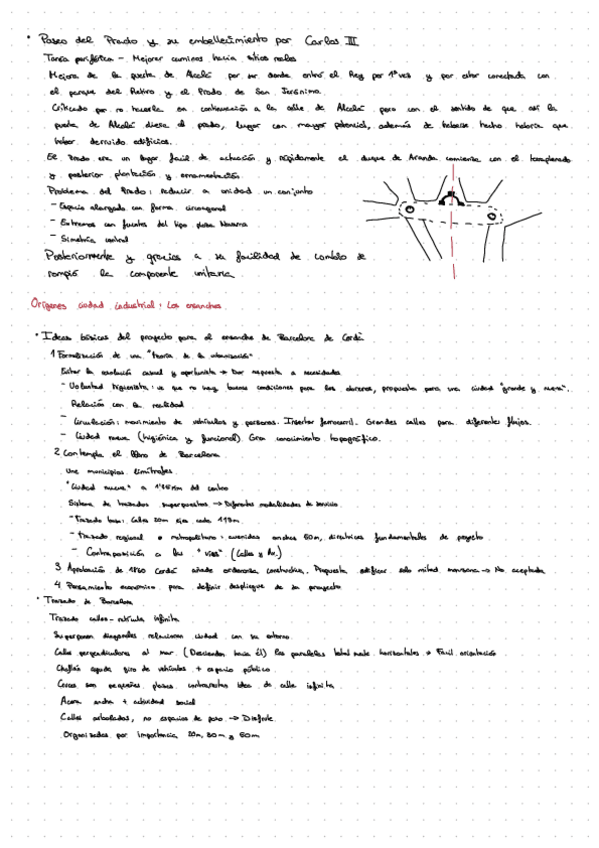 • Paseo del Prado y su embellecimiento por Carlos III
Tarea periférica - Mejorar caminos hacia sitios reales
Mejora de la puerta de Alcalá por ser donde entró el Rey por 1ª vez y por estar conectada con
el parque del Retiro y el Prado de San Jerónimo.
Criticado por no hacerla en continuación a la calle de Alcalá pero con el sentido de que así la
puerta de Alcalá diese al prado, lugar con mayor potencial, además de haberse hecho habría que
haber derruido edificios.
El Prado era un lugar fácil de actuación y rápidamente el duque de Aranda comienza con el
y posterior plantación y ornamentación.
Problema del Prado: reducir a unidad un conjunto
- Espacio alargado con forma circoagonal
- Extremos con fuentes del tipo plaza Navona
- Simetría central
Posteriormente y gracias a su facilidad de cambio se
rompió la componente unitaria
Orígenes ciudad industrial: Los ensanches
• Ideas básicas del proyecto para el ensanche de Barcelona de Cerdá
1 Formalización de una "teoría de la urbanización"
Evitar la evolución casual y oportunista → Dar respuesta a necesidades
- Voluntad higienista: ve que no hay buenas condiciones para los obreros, propuesta para una ciudad "grande y nueva".
Relación con la realidad
- Circulación: movimiento de vehículos y personas. Insertar ferrocarril. Grandes calles para diferentes flujos.
- Ciudad nueva (higiénica y funcional). Gran conocimiento topográfico.
2 Contempla el llano de Barcelona
Une municipios limítrofes.
"Ciudad nueva" a del centro
Sistema de trazados superpuestos → Diferentes modalidades de servicio
- Trazado base: Calles 20m ejes cada 113m
- Trazado regional o metropolitano: avenidas anchas 50m, directrices fundamentales de proyecto
- Contraposición a las "vías" (Calles y Av.)
3 Aprobación de 1860 Cerdá añade ordenanza constructiva. Propuesta edificar solo mitad manzana → No aceptada
4 Pensamiento económico para definir despliegue de su proyecto
• Trazado de Barcelona
Trazado calles - retícula infinita
Superponen diagonales relacionan ciudad con su entorno.
Calles perpendiculares al mar (Descienden hacia él) las paralelas totalmente horizontales → Fácil orientación
Chaflán ayuda giro de vehículos + espacio público.
Cruces son pequeñas plazas, contrarrestan idea de calle infinita
Acera ancha + actividad social
Calles arboladas, no espacios de paso → Disfrute
Organizadas por importancia 20m, 30m y 50m